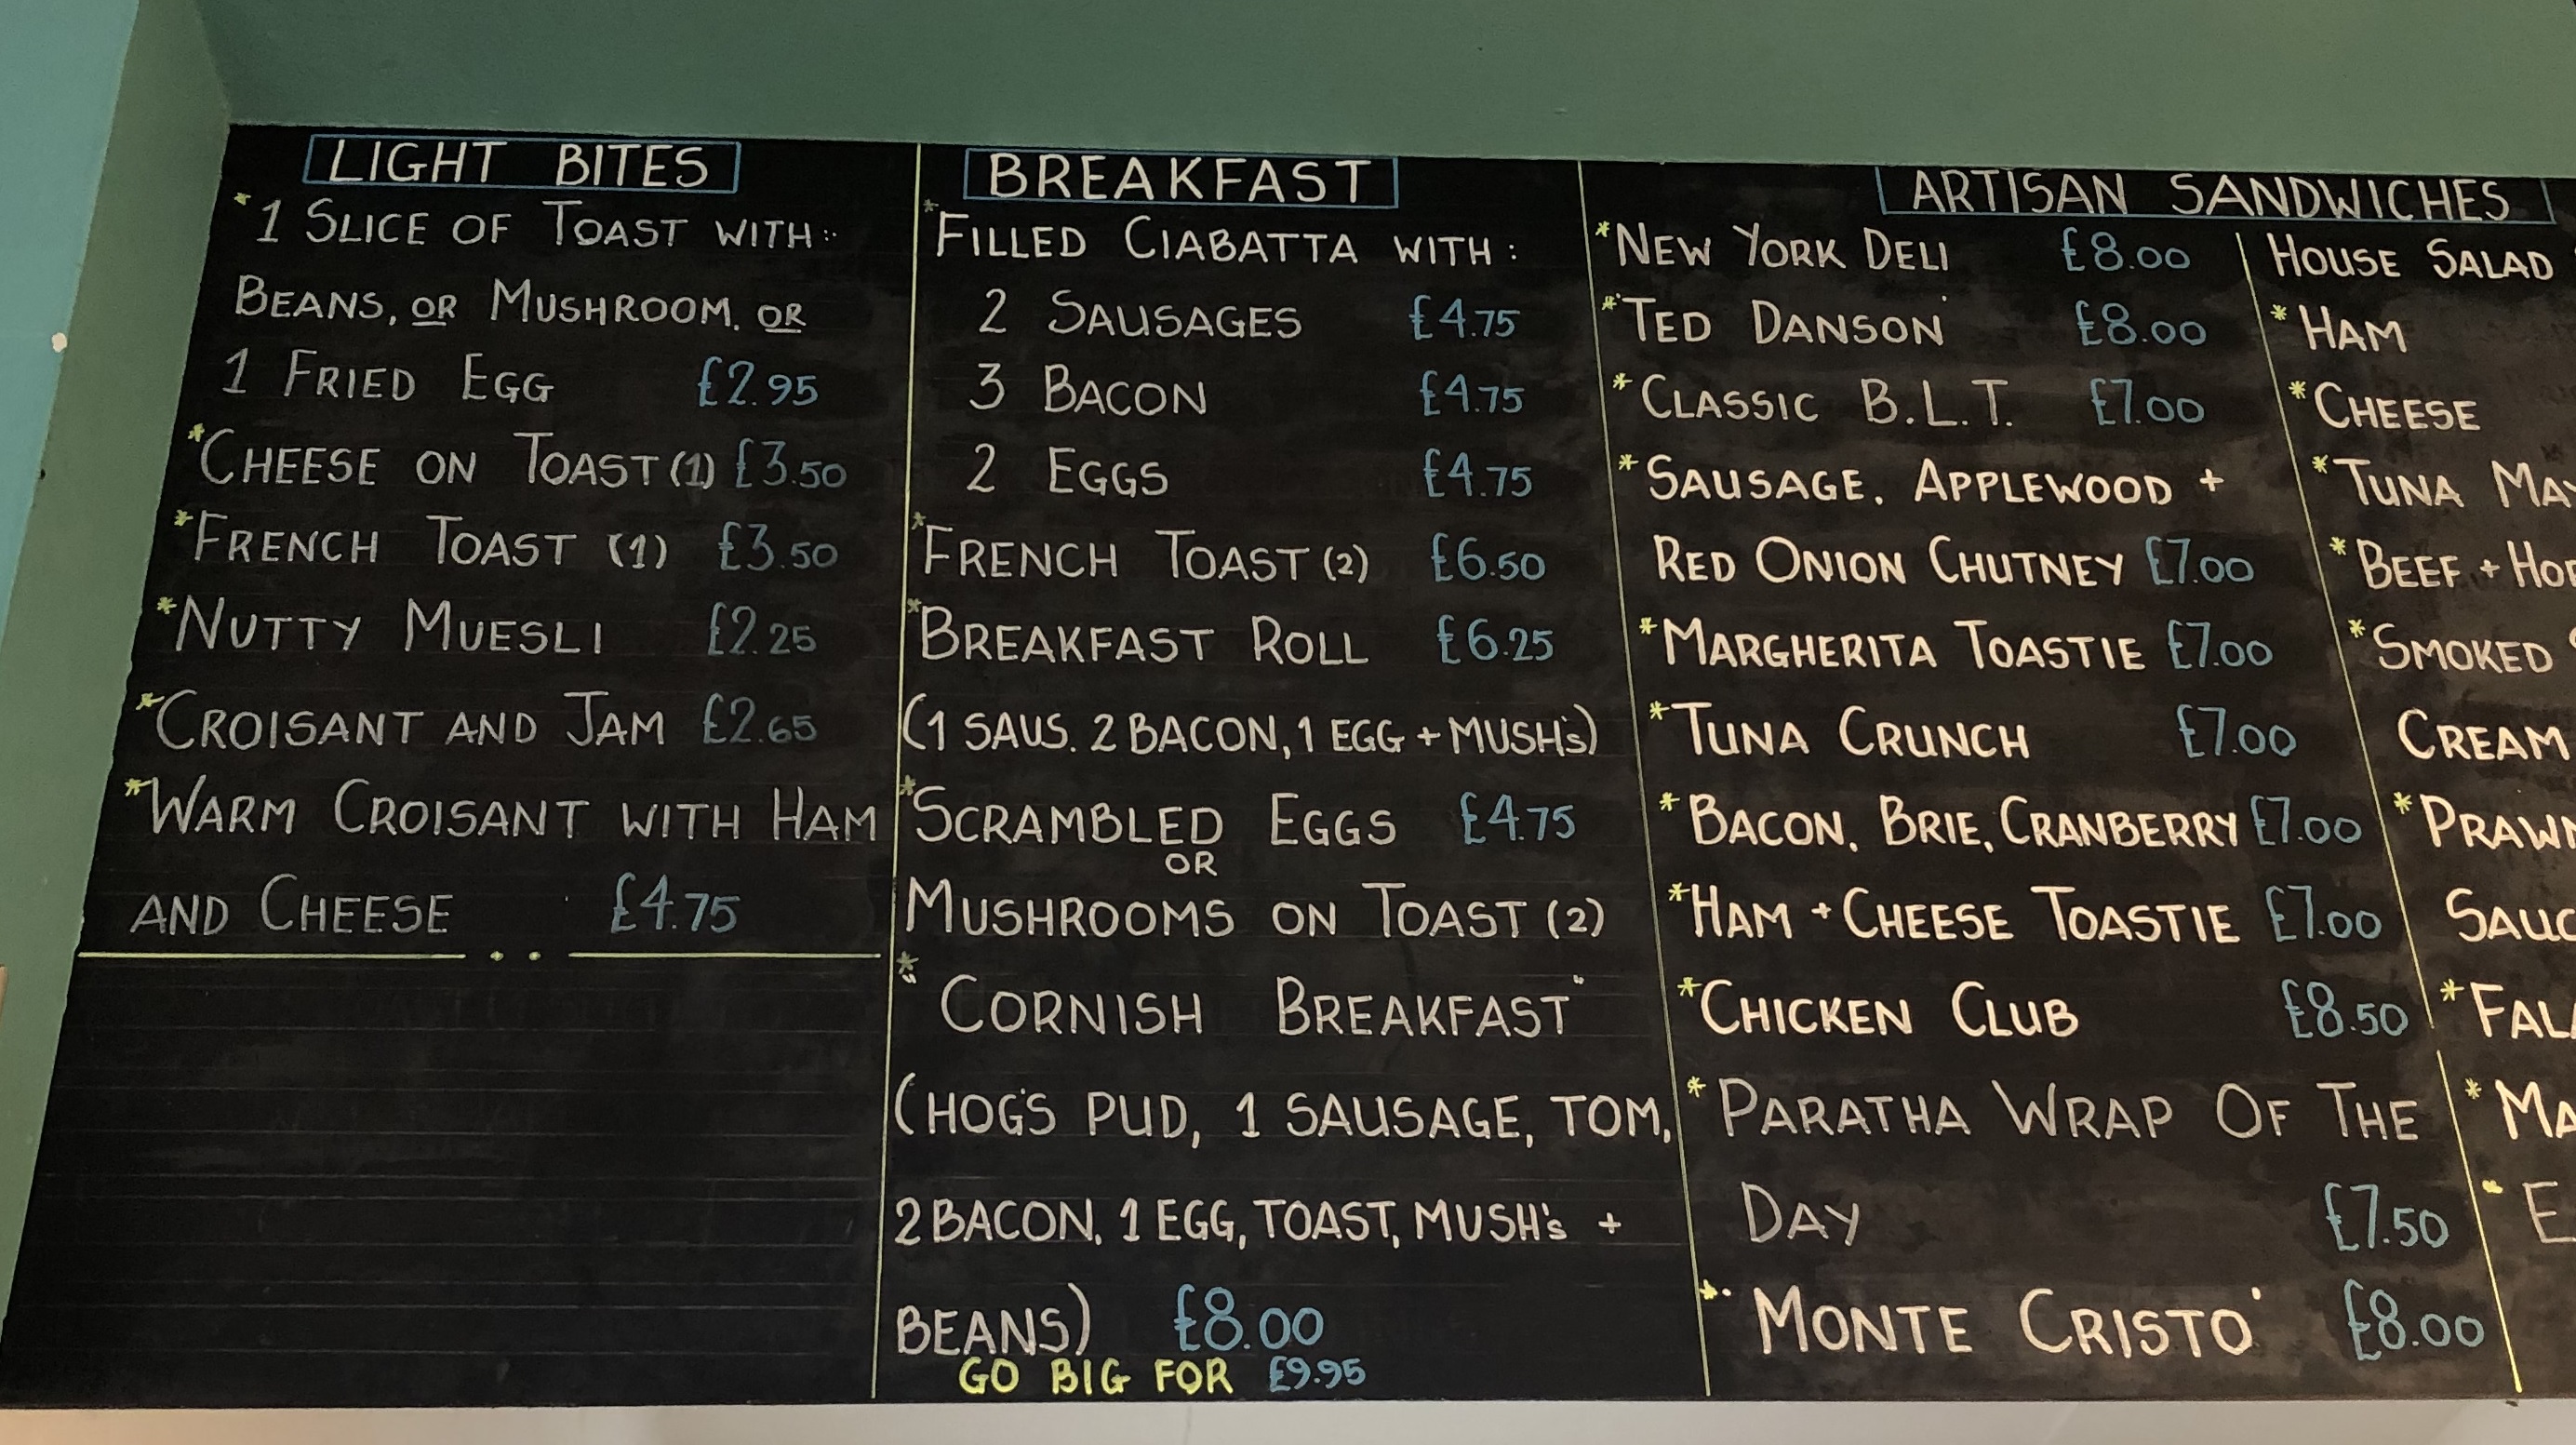 LIGHT BITES
*1 SLICE OF TOAST WITH:
BEANS, OR MUSHROOM. OR
1 FRIED EGG £2.95
*CHEESE ON TOAST (1) £3.50
*FRENCH TOAST (1) £3.50
*NUTTY MUESLI £2.25
*CROISANT AND JAM £2.65
*WARM CROISANT WITH HAM
AND CHEESE £4.75
BREAKFAST
*FILLED CIABATTA WITH:
2 SAUSAGES £4.75
3 BACON £4.75
2 EGGS £4.75
*FRENCH TOAST (2) £6.50
*BREAKFAST ROLL £6.25
(1 SAUS. 2 BACON, 1 EGG + MUSH's)
*SCRAMBLED EGGS £4.75
OR
MUSHROOMS ON TOAST (2)
*"CORNISH BREAKFAST"
(HOG'S PUD, 1 SAUSAGE, TOM,
2 BACON, 1 EGG, TOAST, MUSH's +
BEANS) £8.00
GO BIG FOR £9.95
ARTISAN SANDWICHES
*NEW YORK DELI £8.00
*'TED DANSON' £8.00
*CLASSIC B.L.T. £7.00
*SAUSAGE, APPLEWOOD +
RED ONION CHUTNEY £7.00
*MARGHERITA TOASTIE £7.00
*TUNA CRUNCH £7.00
*BACON, BRIE, CRANBERRY £7.00
*HAM + CHEESE TOASTIE £7.00
*CHICKEN CLUB £8.50
*PARATHA WRAP OF THE
DAY £7.50
*'MONTE CRISTO' £8.00
HOUSE SALAD
*HAM
*CHEESE
*TUNA
*BEEF +
*SMOKED
CREAM
*PRAWN